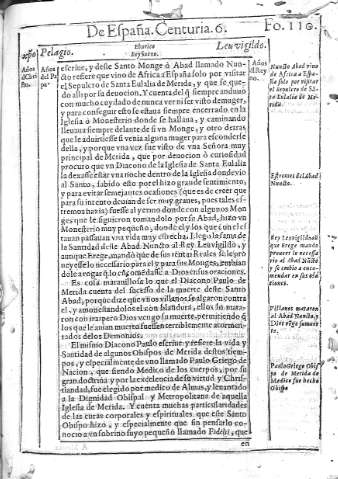 De España. Centuria. 6.
Fo. 110.
Pelagio.
Rey Godo.
Leuvigildo.
escriue, y deste Santo Monge ò Abad llamado Nuncto
refiere que vino de Africa a España solo por visitar
el Sepulcro de Santa Eulalia de Merida, y que se quedo
alli por su deuocion. Y cuenta del que siempre anduuo
con mucho cuydado de nunca ver ni ser visto de muger,
y para conseguir esto se estaua siempre encerrado en la
Iglesia ò Monesterio donde se hallaua, y caminando
lleuaua siempre delante de si vn Monge, y otro detras
que le aduirtiesse si venia alguna muger para esconderse
della, y porque vna vez fue visto de vna Señora muy
principal de Merida, que por deuocion ò curiosidad
procurò que vn Diacono de la Iglesia de Santa Eulalia
la dexasse estar vna noche dentro de la Iglesia donde vio
al Santo, sabido esto por el hizo grande sentimiento,
y para euitar semejantes ocasiones (que es de creer que
para su intento deuian de ser muy graues, pues tales estremos
hazia) fuesse al yermo donde con algunos Monges
que le siguieron tomandolo por su Abad, hizo vn
Monesterio muy pequeño, donde el y los que con el estauan
passauan vna vida muy estrecha. Llego la fama de
la Santidad deste Abad Nuncto al Rey Leuvigildo, y
aunque Erege, mandò que de sus rentas Reales se le proueyesse
lo necessario para el y para sus Monges,
Es cosa marauillosa lo que el Diacono Paulo de
Merida cuenta del sucesso de la muerte deste Santo
Abad, porque dize que vnos villanos se alçaron contra
el, y amonestandolos el con blandura, ellos le mataron
con impropero Dios vengo su muerte, permitiendo que
los que le auian muerto fuessen terriblemente atormentados
de los Demonios.
El mismo Diacono Paulo escriue y refiere la vida y
Santidad de algunos Obispos de Merida destos tiempos,
y especialmente de vno llamado Paulo Griego de
Nacion, que siendo Medico de los cuerpos, por su
gran doctrina y por la excelencia de su virtud y Christiandad,
fue elegido por medico de Almas, y leuantado
a la Dignidad Obispal y Metropolitana de aquella
Iglesia de Merida. Y cuenta muchas particularidades
de las curas corporales y espirituales que este Santo
Obispo hizo, y especialmente que sin pensarlo conocio
a vn sobrino suyo pequeño llamado Fidelis, que
en
Nuncto Abad vino
de Africa a España
solo por visitar
el sepulcro de Santa
Eulalia de Merida.
Estremos del Abad
Nuncto.
Rey Leuvigildo aunque
Erege mandò
proueer lo necessario
al Abad Nuncto
y se embio a encomendar
en sus oraciones.
Villanos mataron
al Abad Nuncto, y
Dios vengo su muerte.
Paulo Griego Obispo
de Merida de
Medico fue hecho
Obispo